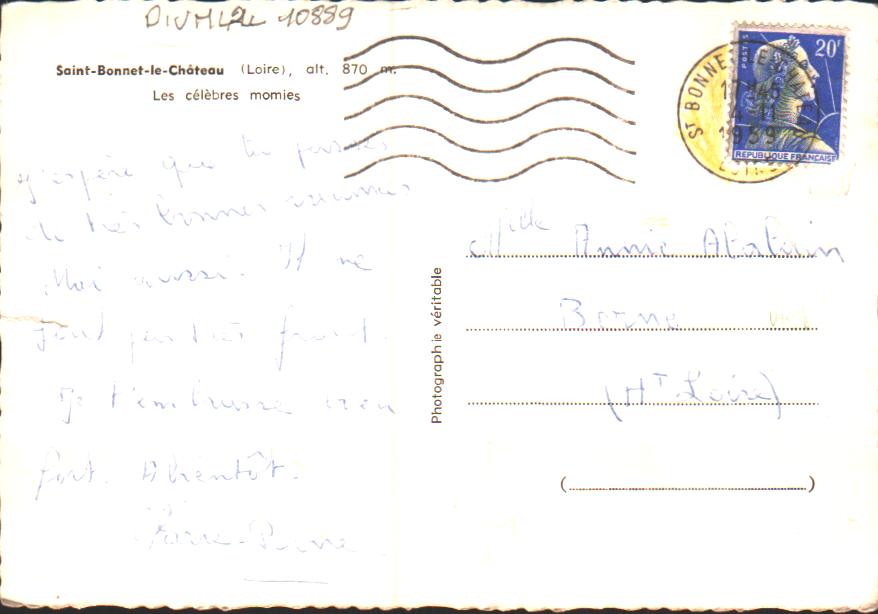 10889
Saint-Bonnet-le-Château (Loire), alt. 870 m.
Les célèbres momies
POSTES
20F
REPUBLIQUE FRANÇAISE
17H45
4-11
1959
j'espère que tu passes
de très bonnes vacances
Moi aussi. Il ne
fait pas très froid.
Je t'embrasse bien
fort. A bientôt.
Photographie véritable
Mlle Annie
Borne
(Hte Loire)